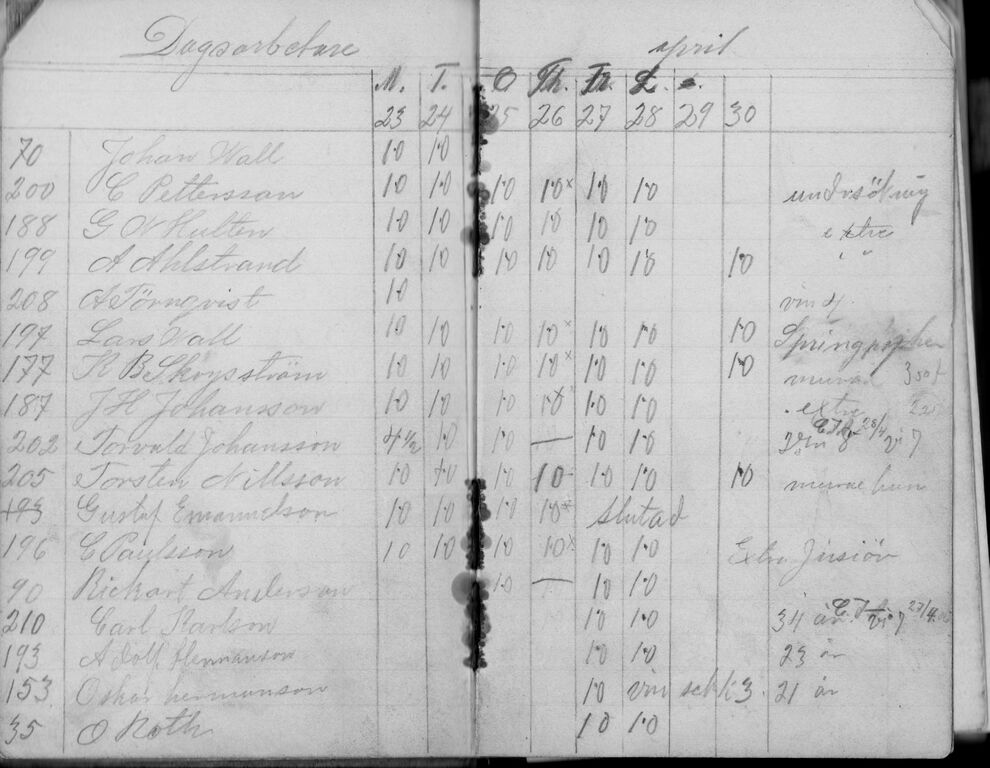 Dagsarbetare april
M. T. O Th. Fr. L. s.
23 24 25 26 27 28 29 30
70 Johan Wall 10 10
200 C Pettersson 10 10 10 10x 10 10
188 G W Hulten 10 10 10 10 10 10 extre
199 A Ahlstrand 10 10 10 10 10 10 10 " "
208 A Törnqvist 10
197 Lars Wall 10 10 10 10x 10 10 10
177 K B 10 10 10 10x 10 10 10
187 J H Johansson 10 10 10 10 10 10 extre
202 Torvald Johansson 4 1/2 10 10 — 10 10
205 Torsten Nillsson 10 10 10 10 10 10 10
193 Gustaf Emanuelson 10 10 10 10x slutad
196 C Paulsson 10 10 10 10x 10 10 Extra
90 Rickart Anderson 10 — 10 10
210 Carl Karlson 10 10 34 år 27/4
193 Adolf Hermanson 10 10 23 år
153 Oskar Hermanson 10 21 år
35 O Roth 10 10